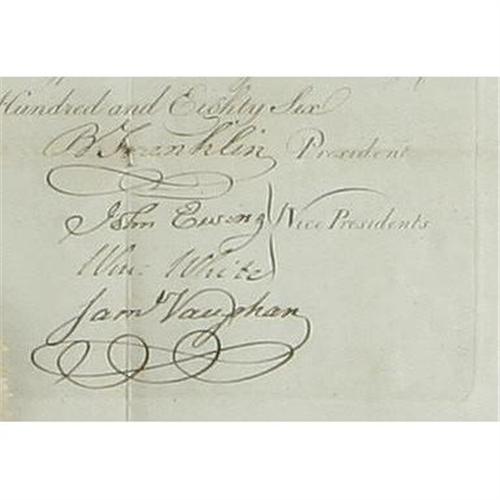 Hundred and Eighty Six
B Franklin President
John Ewing Vice Presidents
Wm. White
Sam.l Vaughan